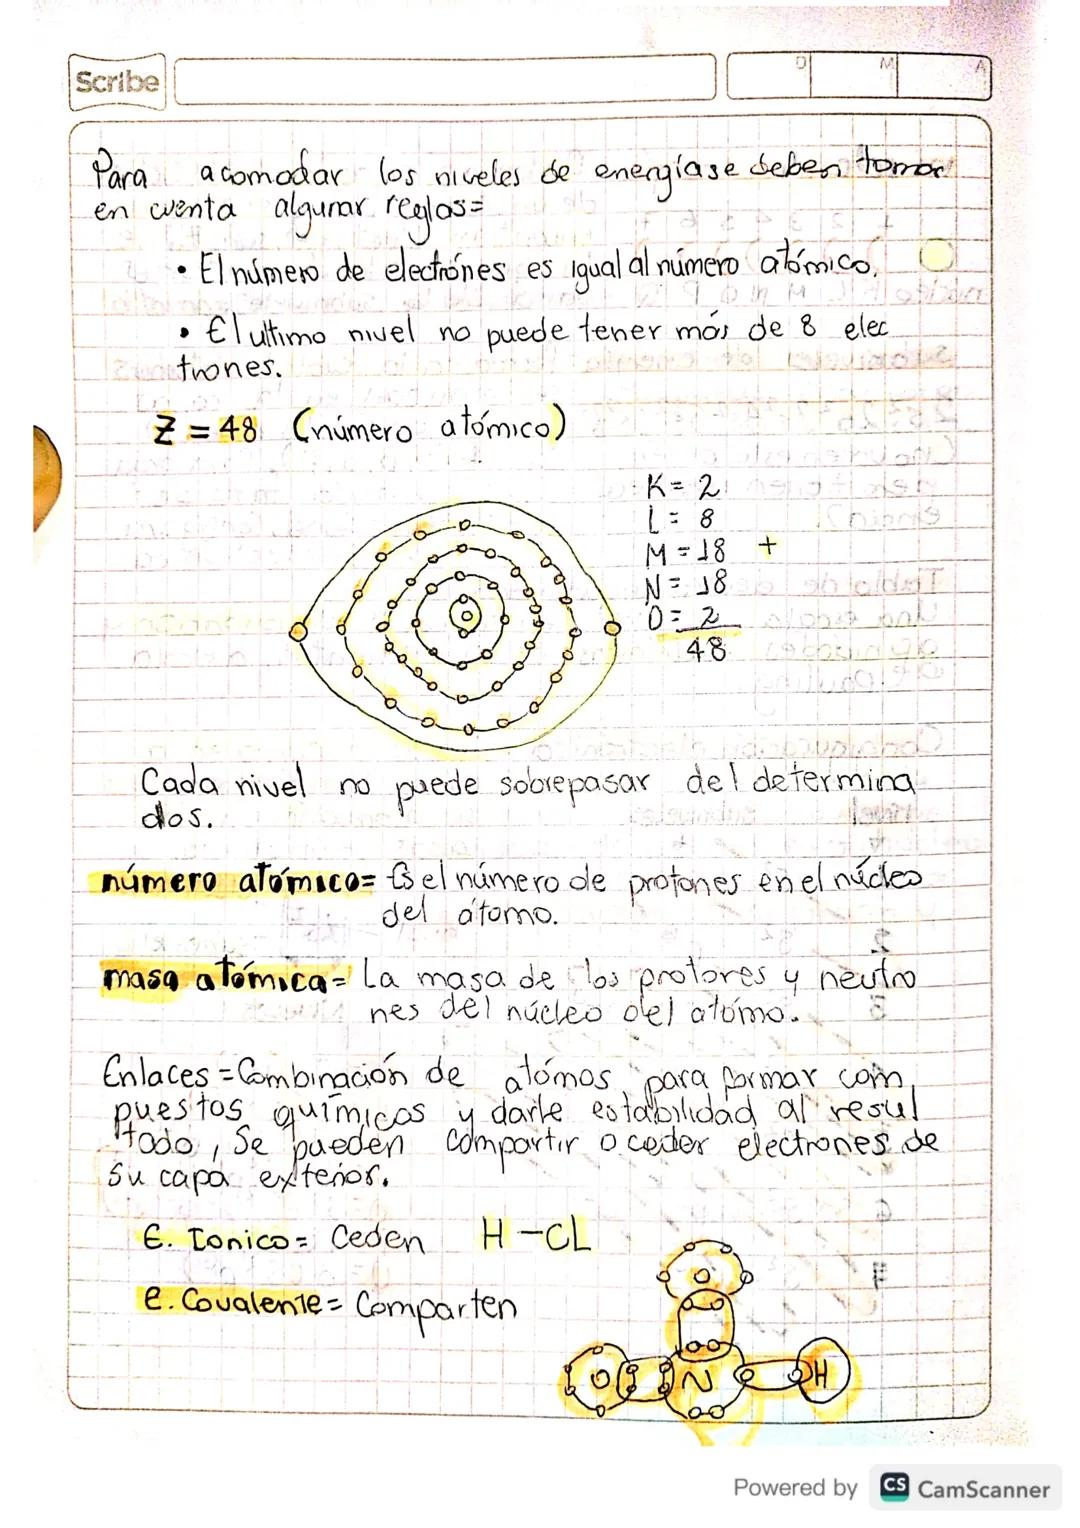 Scribe
D M A
Para acomodar los niveles de energía se deben tomar
en cuenta algunar reglas=
• El número de electrónes es igual al número atómico.
• El ultimo nivel no puede tener más de 8 elec
trones.
Z = 48 (número atómico)
K = 2
L = 8
M = 18 +
N = 18
O = 2
48
Cada nivel no puede sobrepasar del determina
dos.
número atómico= Es el número de protones en el núcleo
del átomo.
masa atómica= La masa de los protores y neutro
nes del núcleo del atómo.
Enlaces = Combinación de atómos para formar com
puestos químicos y darle estabilidad al resul
tado, Se pueden compartir o ceder electrones de
su capa exterior.
E. Ionico= Ceden H-CL
e. Covalente= Comparten
O
O N H
Powered by CS CamScanner